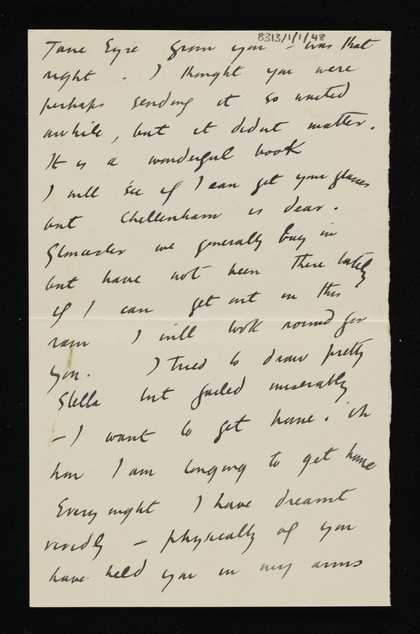 8313/1/1/48
Jane Eyre from you – was that
right. I thought you were
perhaps sending it so waited
awhile, but it didnt matter.
It is a wonderful book
I will see if I can get your glasses
but Cheltenham is dear.
Gloucester we generally buy in
but have not been there lately
if I can get out in this
rain I will look round for
you. I tried to draw pretty
Stella but failed miserably
– I want to get home. Oh
how I am longing to get home
Every night I have dreamt
vividly – physically of you
have held you in my arms